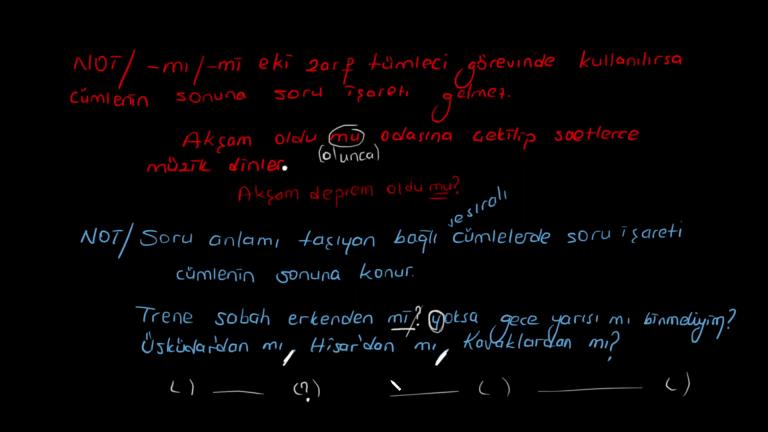 NOT/ -mı/-mi eki zarf tümleci görevinde kullanılırsa
cümlenin sonuna soru işareti gelmez.
Akşam oldu mu odasına çekilip saatlerce
(olunca)
müzik dinler.
Akşam deprem oldu mu?
sıralı
NOT/ Soru anlamı taşıyan bağlı cümlelerde soru işareti
cümlenin sonuna konur.
Trene sabah erkenden mi? yoksa gece yarısı mı binmeliyim?
Üsküdar'dan mı, Hisar'dan mı, Kavaklardan mı?
( ) ___ (?) ___ ( ) ___ ( )